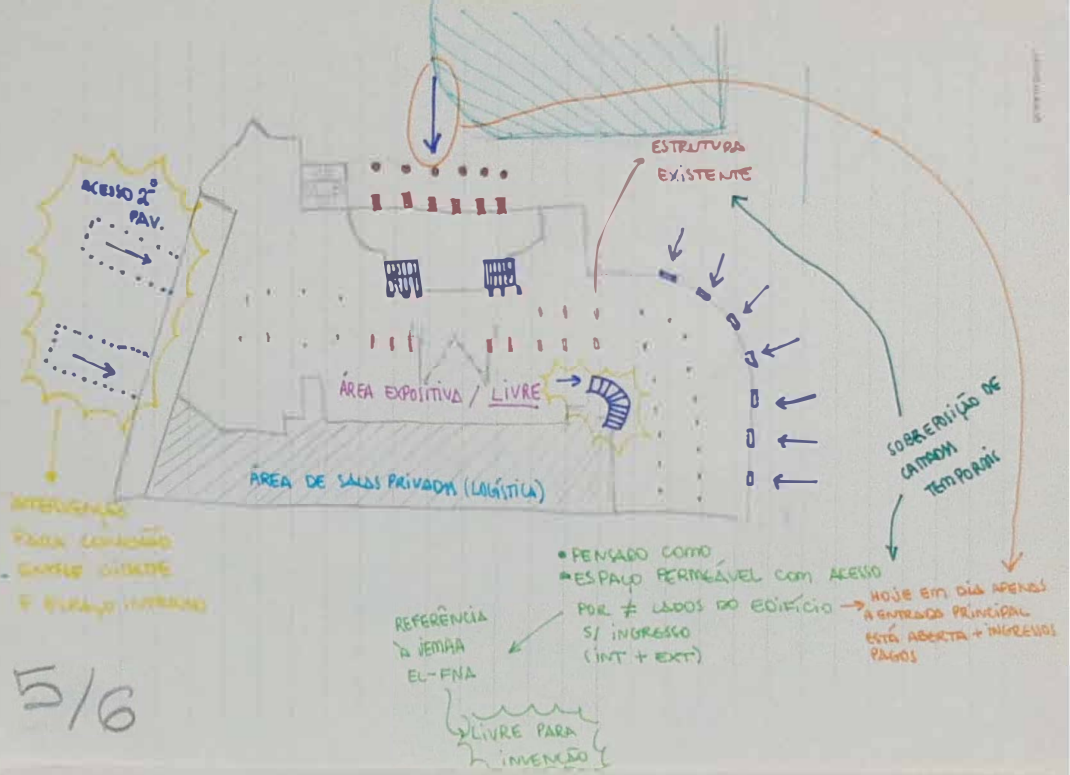 ESTRUTURA
EXISTENTE
ACESSO 2º
PAV.
ÁREA EXPOSITIVA / LIVRE
ÁREA DE SALAS PRIVADA (LOGÍSTICA)
SOBREPOSIÇÃO DE
CAMADAS
TEMPORAIS
INTERVENÇÃO
PARA CONEXÃO
ENTRE CIDADE
E ESPAÇO INTERNO
• PENSADO COMO
• ESPAÇO PERMEÁVEL COM ACESSO
POR ≠ LADOS DO EDIFÍCIO
S/ INGRESSO
(INT + EXT)
HOJE EM DIA APENAS
A ENTRADA PRINCIPAL
ESTÁ ABERTA + INGRESSOS
PAGOS
REFERÊNCIA
À JEMAA
EL-FNA
LIVRE PARA
INVENÇÃO
5/6